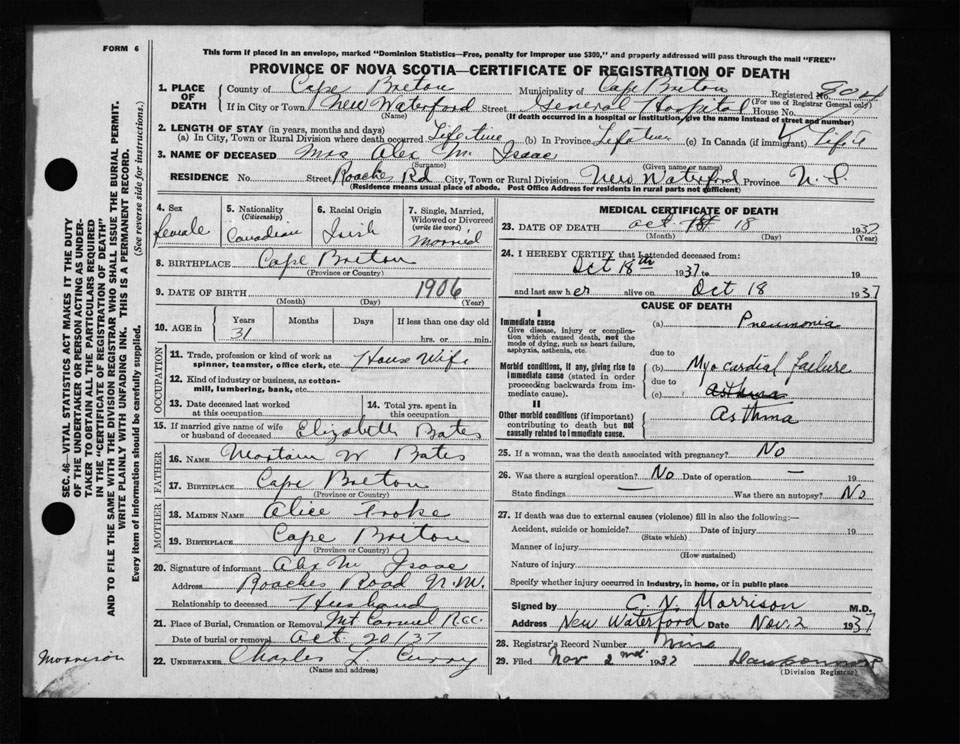 FORM 6
This form if placed in an envelope, marked "Dominion Statistics—Free, penalty for improper use $300," and properly addressed will pass through the mail "FREE"
PROVINCE OF NOVA SCOTIA—CERTIFICATE OF REGISTRATION OF DEATH
1. PLACE OF DEATH
County of Cape Breton Municipality of Cape Breton Registered No. 904
(For use of Registrar General only)
If in City or Town New Waterford Street General Hospital House No.
(Name) (If death occurred in a hospital or institution, give the name instead of street and number)
2. LENGTH OF STAY (in years, months and days)
(a) In City, Town or Rural Division where death occurred Life time (b) In Province Life time (c) In Canada (if immigrant) Life
3. NAME OF DECEASED Mrs Alex M. Isaac
(Surname) (Given name or names)
RESIDENCE No. Street Roaches Rd City, Town or Rural Division New Waterford Province N. S.
(Residence means usual place of abode. Post Office Address for residents in rural parts not sufficient)
4. Sex
female
5. Nationality
(Citizenship)
Canadian
6. Racial Origin
Irish
7. Single, Married, Widowed or Divorced
(write the word)
Married
8. BIRTHPLACE Cape Breton
(Province or Country)
9. DATE OF BIRTH 1906
(Month) (Day) (Year)
10. AGE in Years Months Days If less than one day old
31 hrs. or min.
OCCUPATION
11. Trade, profession or kind of work as spinner, teamster, office clerk, etc. House Wife
12. Kind of industry or business, as cotton-mill, lumbering, bank, etc.
13. Date deceased last worked at this occupation
14. Total yrs. spent in this occupation
15. If married give name of wife or husband of deceased Elizabeth Bates
FATHER
16. NAME W. Bates
17. BIRTHPLACE Cape Breton
(Province or Country)
MOTHER
18. MAIDEN NAME Alice
19. BIRTHPLACE Cape Breton
(Province or Country)
20. Signature of informant Alex M Isaac
Address Roaches Road N.W.
Relationship to deceased Husband
21. Place of Burial, Cremation or Removal Mt Carmel
Date of burial or removal Oct 20/37
22. UNDERTAKER Charles L Curry
(Name and address)
MEDICAL CERTIFICATE OF DEATH
23. DATE OF DEATH Oct 18 1937
(Month) (Day) (Year)
24. I HEREBY CERTIFY that I attended deceased from:
Oct 18th 1937 to 19
and last saw her alive on Oct 18 1937
CAUSE OF DEATH
I
Immediate cause
Give disease, injury or complication which caused death, not the mode of dying, such as heart failure, asphyxia, asthenia, etc.
(a) Pneumonia
due to
Morbid conditions, if any, giving rise to immediate cause (stated in order proceeding backwards from immediate cause).
(b) Myocardial failure
due to
(c) asthma
II
Other morbid conditions (if important) contributing to death but not causally related to immediate cause.
Asthma
25. If a woman, was the death associated with pregnancy? No
26. Was there a surgical operation? No Date of operation — 19
State findings — Was there an autopsy? No
27. If death was due to external causes (violence) fill in also the following:—
Accident, suicide or homicide? Date of injury 19
(State which)
Manner of injury
(How sustained)
Nature of injury
Specify whether injury occurred in industry, in home, or in public place
Signed by C. N. Morrison M.D.
Address New Waterford Date Nov. 2 1937
28. Registrar's Record Number
29. Filed Nov 2nd 1937
(Division Registrar)
SEC. 46—VITAL STATISTICS ACT MAKES IT THE DUTY
OF THE UNDERTAKER OR PERSON ACTING AS UNDER-
TAKER TO OBTAIN ALL THE PARTICULARS REQUIRED
IN THE "CERTIFICATE OF REGISTRATION OF DEATH"
AND TO FILE THE SAME WITH THE DIVISION REGISTRAR WHO SHALL ISSUE THE BURIAL PERMIT.
WRITE PLAINLY WITH UNFADING INK. THIS IS A PERMANENT RECORD.
Every item of information should be carefully supplied. (See reverse side for instructions.)
Morrison